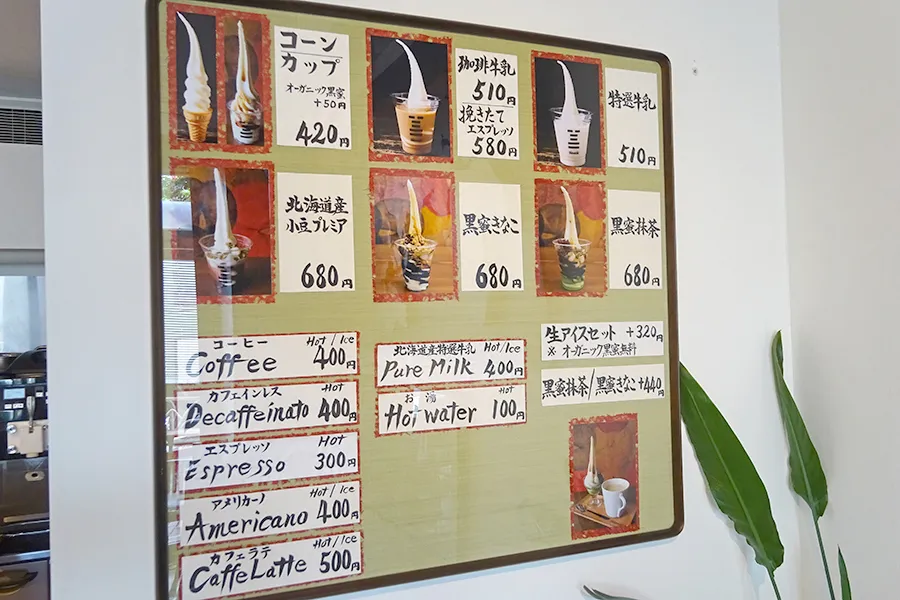 コーン
カップ
オーガニック黒蜜
+50円
420円
珈琲牛乳
510円
挽きたて
エスプレッソ
580円
特選牛乳
510円
北海道産
小豆プレミア
680円
黒蜜きなこ
680円
黒蜜抹茶
680円
コーヒー Hot/Ice
Coffee 400円
カフェインレス Hot
Decaffeinato 400円
エスプレッソ Hot
Espresso 300円
アメリカーノ Hot/Ice
Americano 400円
カフェラテ Hot/Ice
Caffe Latte 500円
北海道産特選牛乳 Hot/Ice
Pure Milk 400円
お湯 Hot
Hot water 100円
生アイスセット +320円
※ オーガニック黒蜜無料
黒蜜抹茶/黒蜜きなこ+440円